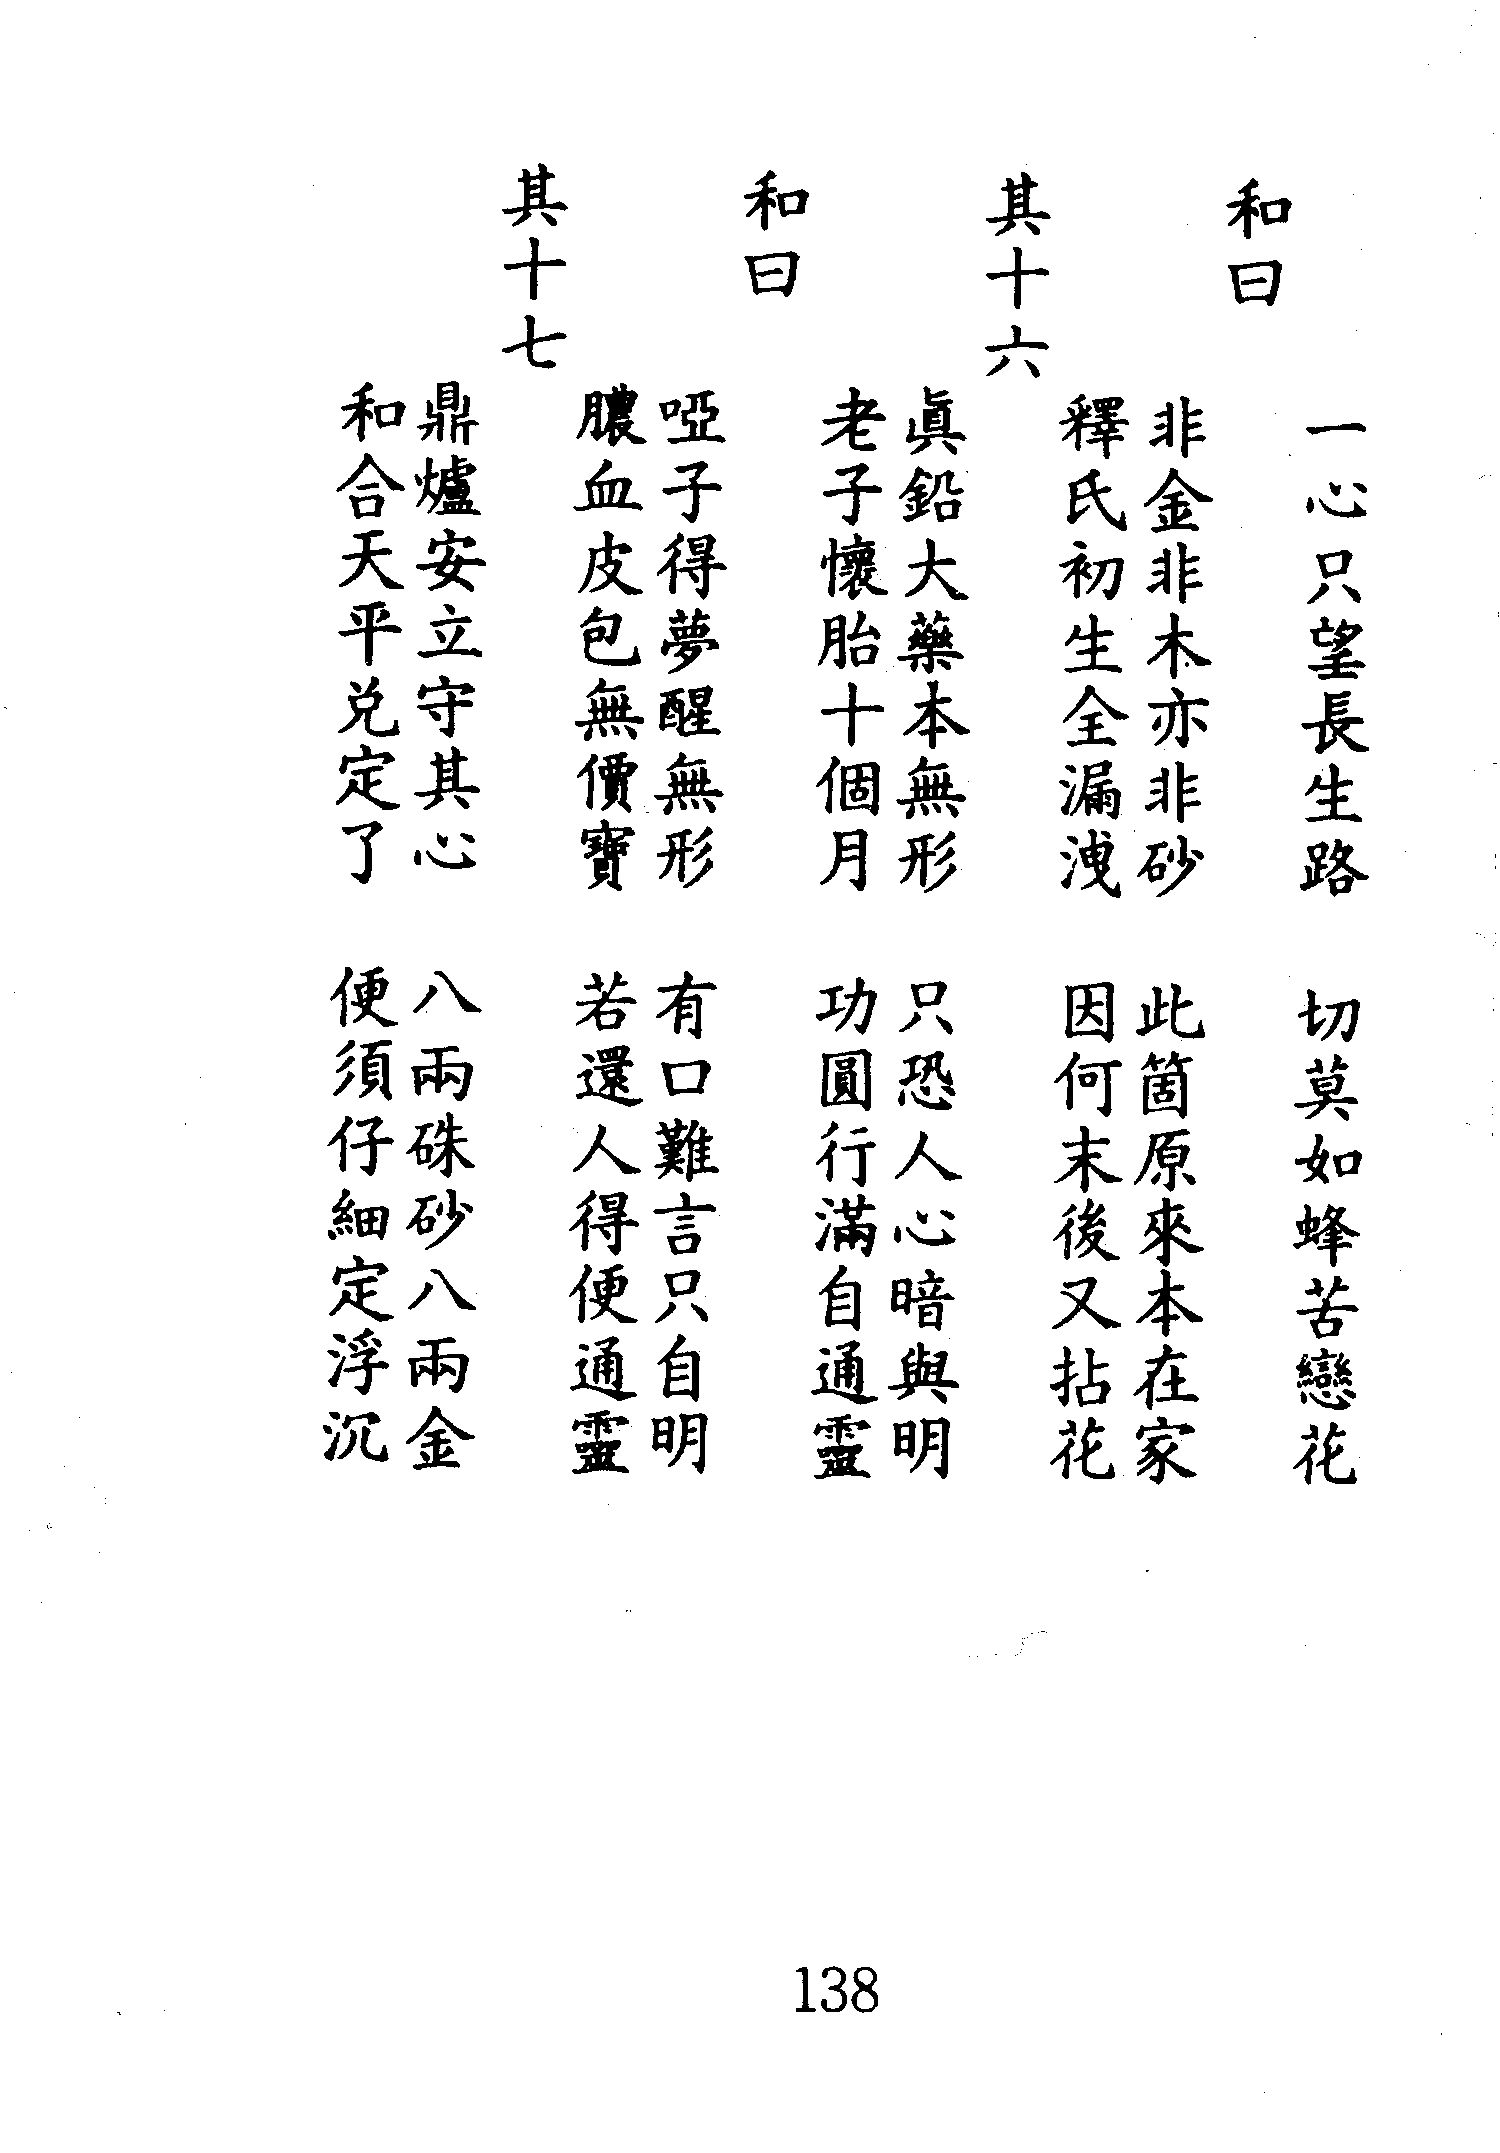 一心只望長生路　切莫如蜂苦戀花
和曰
非金非木亦非砂　此箇原來本在家
釋氏初生全漏洩　因何末後又拈花
其十六
眞鉛大藥本無形　只恐人心暗與明
老子懷胎十個月　功圓行滿自通靈
和曰
啞子得夢醒無形　有口難言只自明
膿血皮包無價寶　若還人得便通靈
其十七
鼎爐安立守其心　八兩硃砂八兩金
和合天平兑定了　便須仔細定浮沉
138